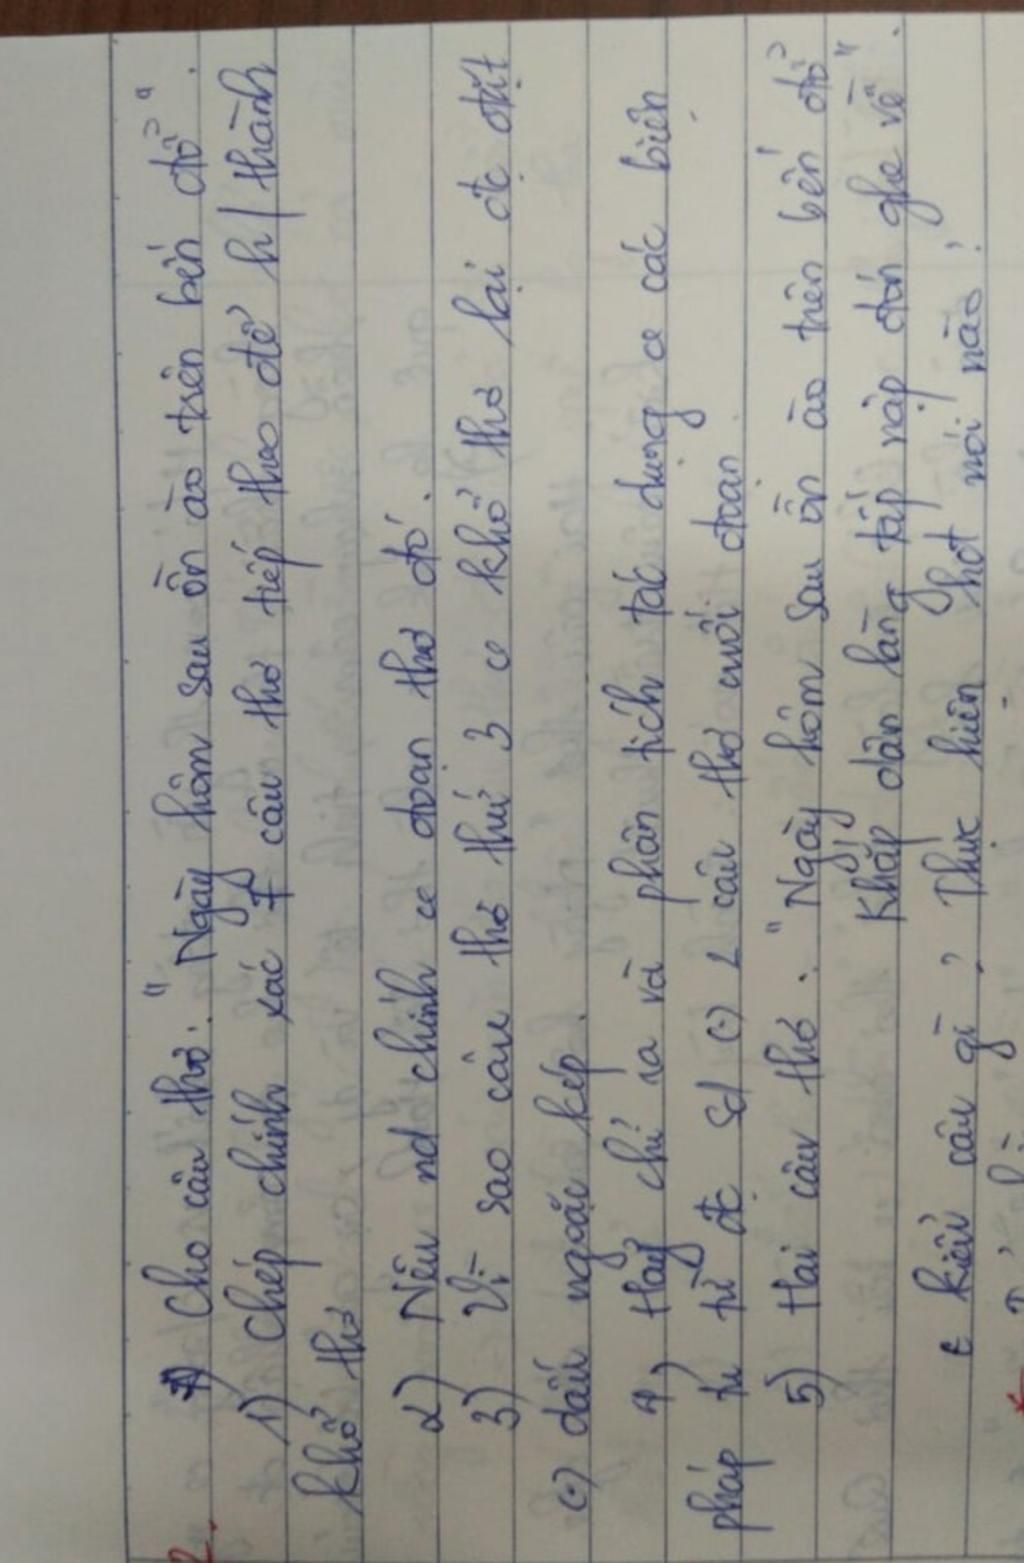 2.
Cho câu thơ: "Ngày hôm sau ồn ào trên bến đỗ".
1) Chép chính xác 7 câu thơ tiếp theo để h/thành
khổ thơ
2) Nêu nd chính c̉ đoạn thơ đó.
3) Vì sao câu thơ thứ 3 c̉ khổ thơ lại đc đặt
(-) dấu ngoặc kép.
4, Hãy chỉ ra và phân tích tác dụng c̉ các biện
pháp tu từ đc sd (-) 2 câu thơ cuối đoạn.
5) Hai câu thơ: "Ngày hôm sau ồn ào trên bến đỗ
Khắp dân làng tấp nập đón ghe về".
kiểu câu gì? Thực hiện hđt nói nào?